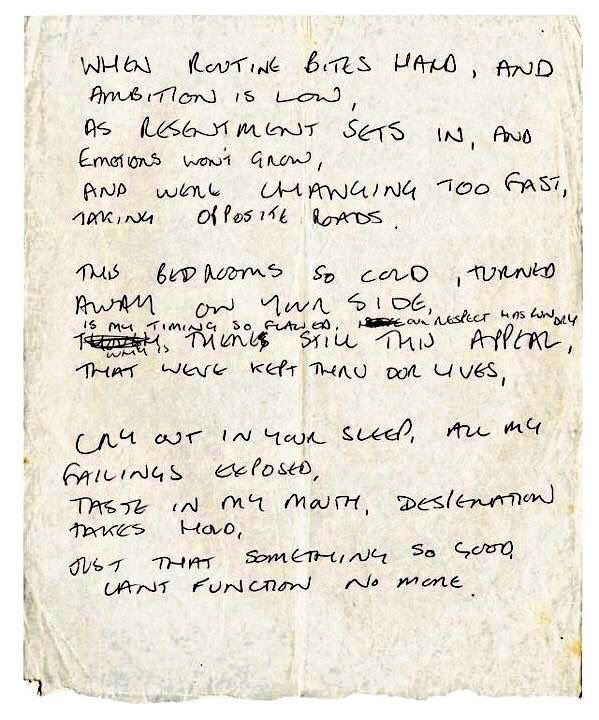 WHEN ROUTINE BITES HARD, AND
AMBITION IS LOW,
AS RESENTMENT SETS IN, AND
EMOTIONS WON'T GROW,
AND WERE CHANGING TOO FAST,
TAKING OPPOSITE ROADS.
THIS BEDROOMS SO COLD, TURNED
AWAY ON YOUR SIDE,
IS MY TIMING SO FLAWED, OUR RESPECT HAS RUN DRY
THERES STILL THIS APPEAL,
WHY IS
THAT WEVE KEPT THRU OUR LIVES,
CRY OUT IN YOUR SLEEP, ALL MY
FAILINGS EXPOSED,
TASTE IN MY MOUTH, DESPERATION
TAKES HOLD,
JUST THAT SOMETHING SO GOOD,
CANT FUNCTION NO MORE.